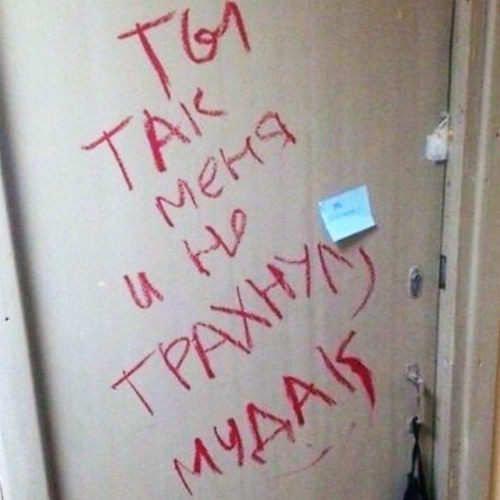 ты
так
меня
и не
трахнул)
мудак